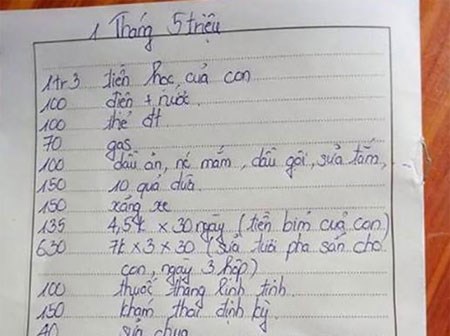 1 Tháng 5 triệu
1tr3 tiền học của con
100 điện + nước.
100 thẻ đt
70 gas.
100 dầu ăn, nc mắm, dầu gội, sữa tắm, ...
150 10 quả dừa.
150 xăng xe
135 4,5k x 30 ngày (tiền bỉm của con)
630 7k x 3 x 30 (sữa tươi pha sẵn cho
con, ngày 3 hộp)
100 thuốc thang linh tinh.
150 khám thai định kỳ.
40 sữa chua